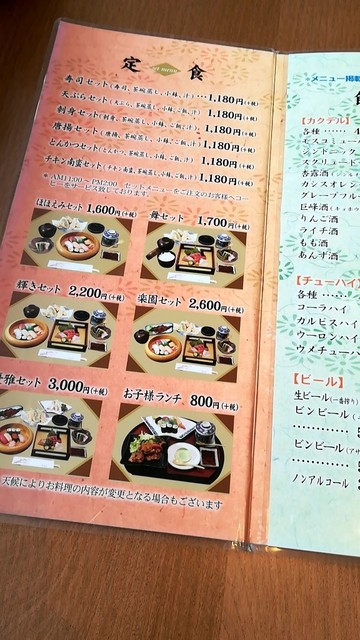 定 set menu 食
寿司セット(寿司、茶碗蒸し、小鉢、汁)‥‥1,180円(+税)
天ぷらセット(天ぷら、茶碗蒸し、小鉢、ご飯、汁) 1,180円(+税)
刺身セット(刺身、茶碗蒸し、小鉢、ご飯、汁)‥1,180円(+税)
唐揚セット(唐揚、茶碗蒸し、小鉢、ご飯、汁)‥1,180円(+税)
とんかつセット(とんかつ、茶碗蒸し、小鉢、ご飯、汁) 1,180円(+税)
チキン南蛮セット(チキン南蛮、茶碗蒸し、小鉢、ご飯、汁) 1,180円(+税)
AM11:00～PM2:00 セットメニューをご注文のお客様へコー
ヒーをサービス致しております。
ほほえみセット 1,600円(+税)
舞セット 1,700円(+税)
輝きセット 2,200円(+税)
楽園セット 2,600円(+税)
雅セット 3,000円(+税)
お子様ランチ 800円(+税)
天候によりお料理の内容が変更となる場合もございます
メニュー掲載
【カクテル】
各種 ‥‥
モスコミュー
シャンディ
スクリュード
杏露酒
カシスオレン
グレープフルー
巨峰酒
りんご酒
ライチ酒
もも酒
あんず酒
【チューハイ】
各種 ‥‥‥
コーラハイ
カルピスハイ
ウーロンハイ
ウメチュー
【ビール】
生ビール(一番搾り)
ビンビール
ビンビール(アサ
ノンアルコール